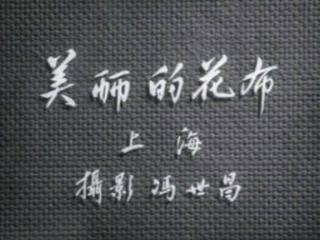 美丽的花布
上海
攝影 冯世昌